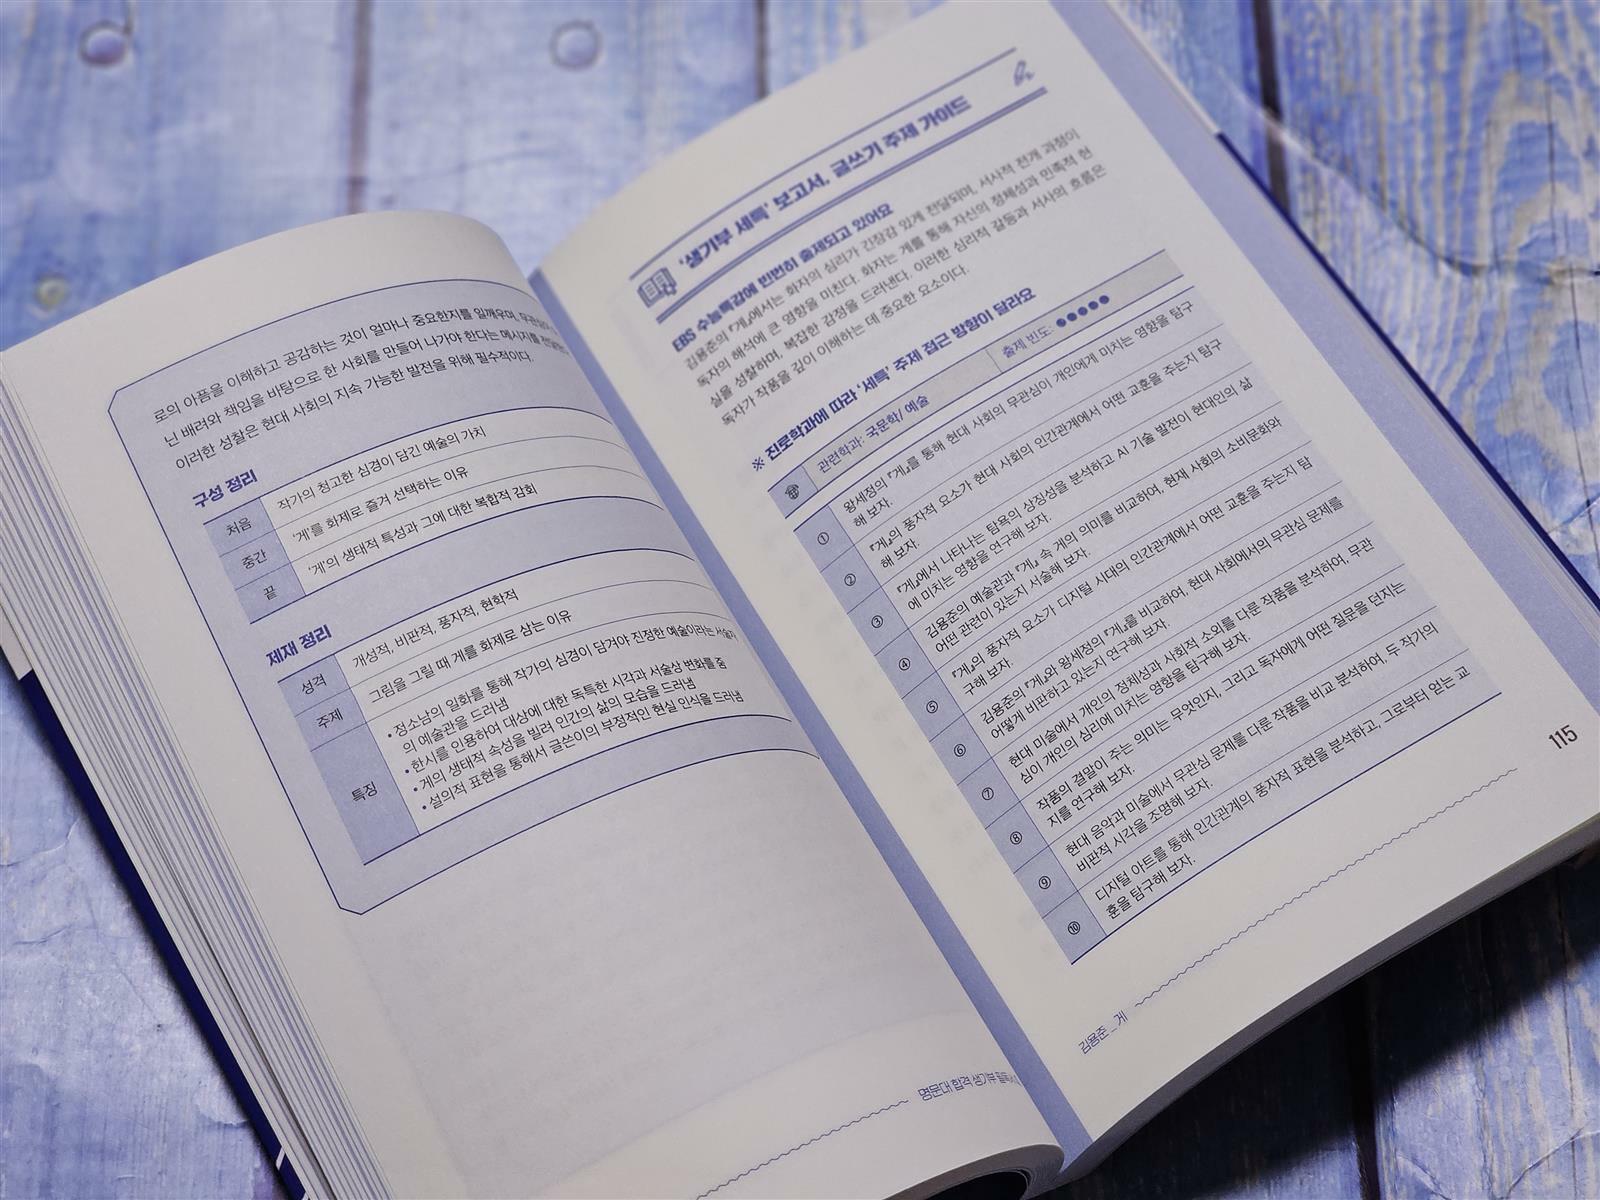 로의 아픔을 이해하고 공감하는 것이 얼마나 중요한지를 일깨우며, 무관심이
닌 배려와 책임을 바탕으로 한 사회를 만들어 나가야 한다는 메시지를
이러한 성찰은 현대 사회의 지속 가능한 발전을 위해 필수적이다.
구성 정리
처음 작가의 청고한 심경이 담긴 예술의 가치
중간 '게'를 화제로 즐겨 선택하는 이유
끝 '게'의 생태적 특성과 그에 대한 복합적 감회
제재 정리
성격 개성적, 비판적, 풍자적, 현학적
주제 그림을 그릴 때 게를 화제로 삼는 이유
특징
• 정소남의 일화를 통해 작가의 심경이 담겨야 진정한 예술이라는 서술자
의 예술관을 드러냄
• 한시를 인용하여 대상에 대한 독특한 시각과 서술상 변화를 줌
• 게의 생태적 속성을 빌려 인간의 삶의 모습을 드러냄
• 설의적 표현을 통해서 글쓴이의 부정적인 현실 인식을 드러냄
명문대 합격 생기부
'생기부 세특' 보고서, 글쓰기 주제 가이드
EBS 수능특강에 빈번히 출제되고 있어요
김용준의 『게』에서는 화자의 심리가 긴장감 있게 전달되며, 서사적 전개 과정이
독자의 해석에 큰 영향을 미친다. 화자는 게를 통해 자신의 정체성과 민족적 현
실을 성찰하며, 복잡한 감정을 드러낸다. 이러한 심리적 갈등과 서사의 흐름은
독자가 작품을 깊이 이해하는 데 중요한 요소이다.
※ 진로학과에 따라 '세특' 주제 접근 방향이 달라요
관련학과: 국문학/ 예술 출제 빈도: ●●●●●
① 왕세정의 『게』를 통해 현대 사회의 무관심이 개인에게 미치는 영향을 탐구
해 보자.
② 『게』의 풍자적 요소가 현대 사회의 인간관계에서 어떤 교훈을 주는지 탐구
해 보자.
③ 『게』에서 나타나는 탐욕의 상징성을 분석하고 AI 기술 발전이 현대인의 삶
에 미치는 영향을 연구해 보자.
④ 김용준의 예술관과 『게』 속 게의 의미를 비교하여, 현재 사회의 소비문화와
어떤 관련이 있는지 서술해 보자.
⑤ 『게』의 풍자적 요소가 디지털 시대의 인간관계에서 어떤 교훈을 주는지 탐
구해 보자.
⑥ 김용준의 『게』와 왕세정의 『게』를 비교하여, 현대 사회에서의 무관심 문제를
어떻게 비판하고 있는지 연구해 보자.
⑦ 현대 미술에서 개인의 정체성과 사회적 소외를 다룬 작품을 분석하여, 무관
심이 개인의 심리에 미치는 영향을 탐구해 보자.
⑧ 작품의 결말이 주는 의미는 무엇인지, 그리고 독자에게 어떤 질문을 던지는
지를 연구해 보자.
⑨ 현대 음악과 미술에서 무관심 문제를 다룬 작품을 비교 분석하여, 두 작가의
비판적 시각을 조명해 보자.
⑩ 디지털 아트를 통해 인간관계의 풍자적 표현을 분석하고, 그로부터 얻는 교
훈을 탐구해 보자.
김용준 _ 게
115